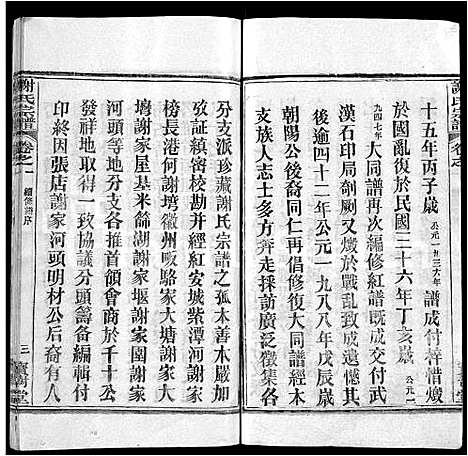 謝氏宗譜
十五年丙子歲公元一九三六年譜成付梓惜燬
於國亂復於民國三十六年丁亥歲公元一
九四七年大同譜再次編修紅譜既成交付武
漢石印局剞劂又燬於戰乱致成遺憾其
後逾四十二年公元一九八八年戊辰歲
朝陽公後裔同仁再倡修復大同譜經本
支族人志士多方奔走採訪廣泛徵集各
分支派珍藏謝氏宗譜之孤木善木嚴加
考證縝密精校勘并經紅安城紫潭河謝
榜長港何謝塆徽州畈駱家大塘謝家
塆謝家屋基米篩湖謝家堰謝家園謝家
河頭謝各支推首領會商於千十公
發祥地取得一致協議分頭籌備編輯付
印終因張店謝家河頭明材公后裔有人
謝氏宗譜
卷之一
續修譜序
三
寶樹堂